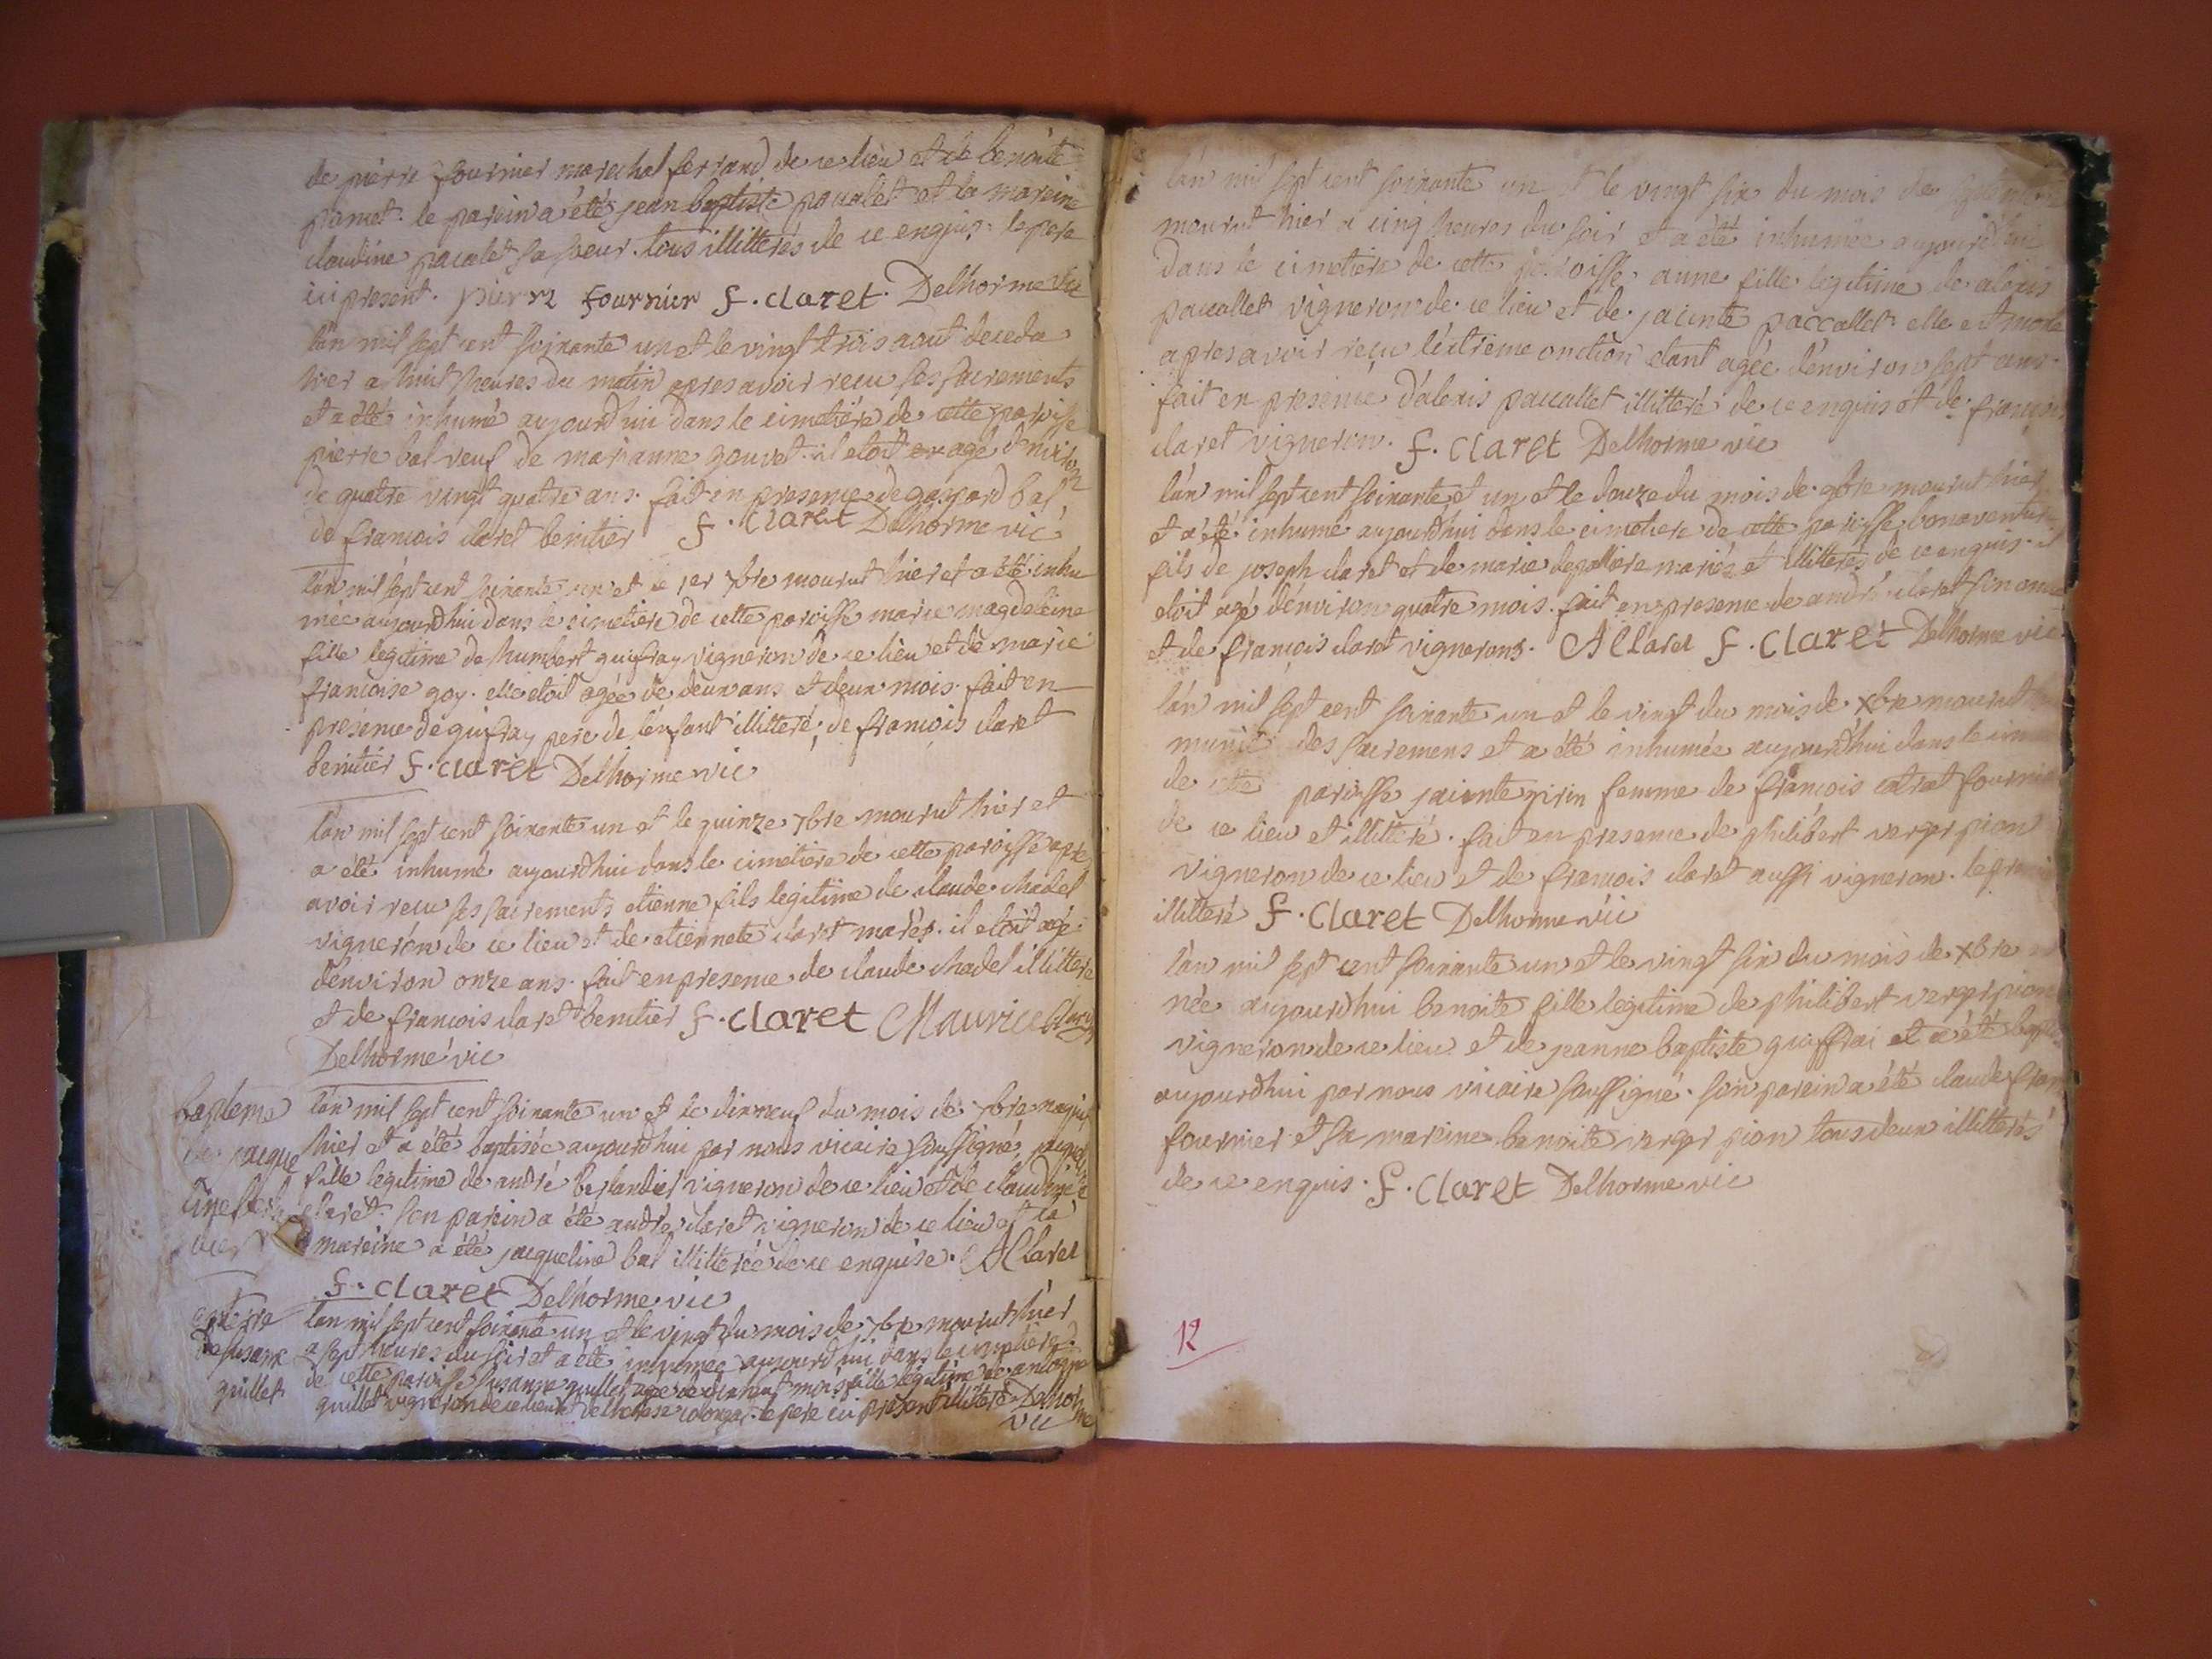 de pierre fournier marechal ferrand de ce lieu et de benoite
pamet. le parein a été jean baptiste pacalet et la mareine
claudine pacalet sa soeur. tous illitterés de ce enquis. le pere
ici present. pierre fournier f. claret. Delhorme vic
l'an mil sept cent soixante un et le vingt trois aout deceda
hier a huit heures du matin apres avoir recu ses sacrements
et a été inhumé aujourdhui dans le cimetiere de cette paroisse
pierre bal veuf de marianne gouvet. il etoit agé d'environ
de quatre vingt quatre ans. fait en presence de gaspard bal,
de francois claret benitier f. Claret Delhorme vic
l'an mil sept cent soixante un et le 1er 7bre mourut hier et a été inhu
mée aujourdhui dans le cimetiere de cette paroisse marie magdeleine
fille legitime de humbert guifray vigneron de ce lieu et de marie
francoise goy. elle etoit agée de deux ans et deux mois. fait en
presence de guifray pere de l'enfant illitteré, de francois claret
benitier f. claret Delhorme vic
l'an mil sept cent soixante un et le quinze 7bre mourut hier et
a été inhumé aujourdhui dans le cimetiere de cette paroisse apres
avoir recu ses sacrements etienne fils legitime de claude chadel
vigneron de ce lieu et de etiennete claret mariés. il etoit agé
d'environ onze ans. fait en presence de claude chadel illitteré
et de francois claret benitier f. claret Maurice
Delhorme vic
bapteme
jacque
line
l'an mil sept cent soixante un et le dixneuf du mois de 7bre naquit
hier et a été baptisée aujourdhui par nous vicaire soussigné, jacqueline
fille legitime de andré berlandier vigneron de ce lieu et de claudine
claret. son parein a été andré claret vigneron de ce lieu et la
mareine a été jacqueline bal illitterée de ce enquise. A Claret
f. claret Delhorme vic
de susane
guillet
l'an mil sept cent soixante un et le vingt du mois de 7bre mourut hier
a sept heures du soir et a été inhumée aujourd'hui dans le cimetiere
de cette paroisse susanne guillet agée de dixhuit mois fille legitime de antoine
guillet vigneron de ce lieu et de therese colonges. le pere ici present illitteré Delhorme
vic
l'an mil sept cent soixante un et le vingt six du mois de septembre
mourut hier a cinq heures du soir et a été inhumée aujourdhui
dans le cimetiere de cette paroisse anne fille legitime de alexis
paccallet vigneron de ce lieu et de jacinte paccallet elle est morte
apres avoir reçu l'extreme onction etant agée d'environ sept ans.
fait en presence d'alexis paccallet illitteré de ce enquis et de françois
claret vigneron. f. Claret Delhorme vic
l'an mil sept cent soixante et un et le douze du mois de 9bre mourut hier
et a été inhumé aujourdhui dans le cimetiere de cette paroisse bonaventure
fils de joseph claret et de marie depalliere mariés et illitterés de ce enquis. il
etoit agé d'environ quatre mois. fait en presence de andré claret son oncle
et de françois claret vignerons. A Claret f. Claret Delhorme vic
l'an mil sept cent soixante un et le vingt du mois de xbre mourut
munie des sacremens et a été inhumée aujourdhui dans le
de cette paroisse jacinte girin femme de francois catrat
de ce lieu et illitteré. fait en presence de philibert verger pion
vigneron de ce lieu et de francois claret aussi vigneron. le
illitteré f. Claret Delhorme vic
l'an mil sept cent soixante un et le vingt six du mois de xbre
née aujourdhui benoite fille legitime de philibert verger pion
vigneron de ce lieu et de jeanne baptiste guiffrai et a été
aujourdhui par nous vicaire soussigné. son parein a été claude
fournier et sa mareine benoite verger pion tous deux illitterés
de ce enquis. f. Claret Delhorme vic
12